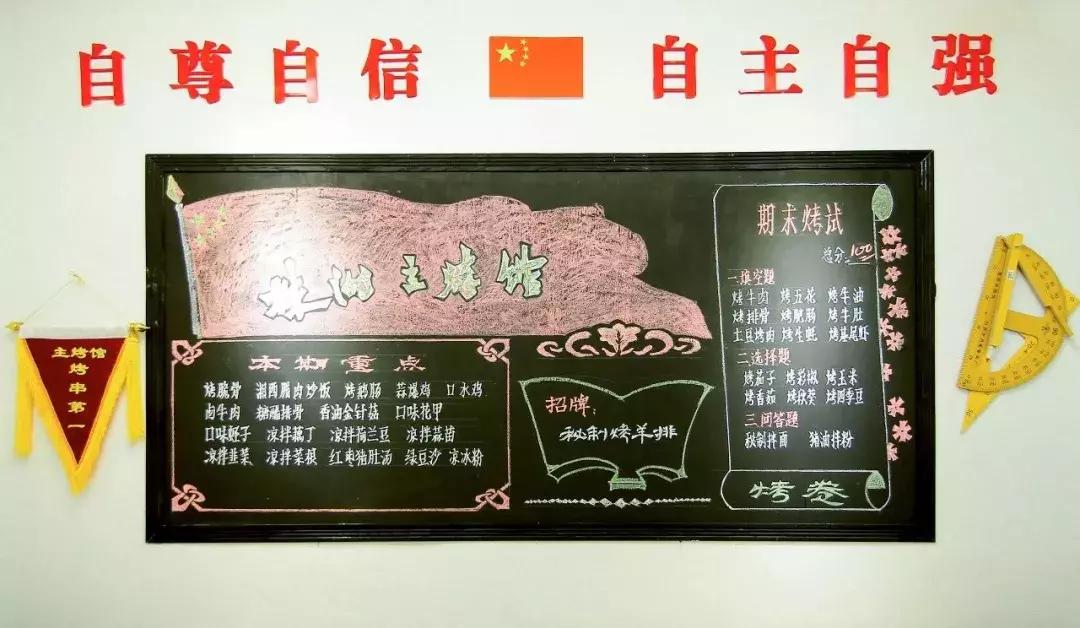 自尊自信 自主自强
株洲主烤馆
本期重点
烤脆骨 湘西腊肉炒饭 烤鸭肠 蒜爆鸡 口水鸡
卤牛肉 糖醋排骨 香油金针菇 口味花甲
口味蛏子 凉拌藕丁 凉拌荷兰豆 凉拌蒜苗
凉拌韭菜 凉拌菜根 红枣猪肚汤 绿豆沙 凉冰粉
招牌：
秘制烤羊排
期末烤试
总分：100
一.填空题
烤牛肉 烤五花 烤牛油
烤排骨 烤脆肠 烤牛肚
土豆烤肉 烤生蚝 烤基尾虾
二.选择题
烤茄子 烤彩椒 烤玉米
烤香菇 烤秋葵 烤四季豆
三.问答题
秘制拌面 猪油拌粉
烤卷
主烤馆
烤串第一